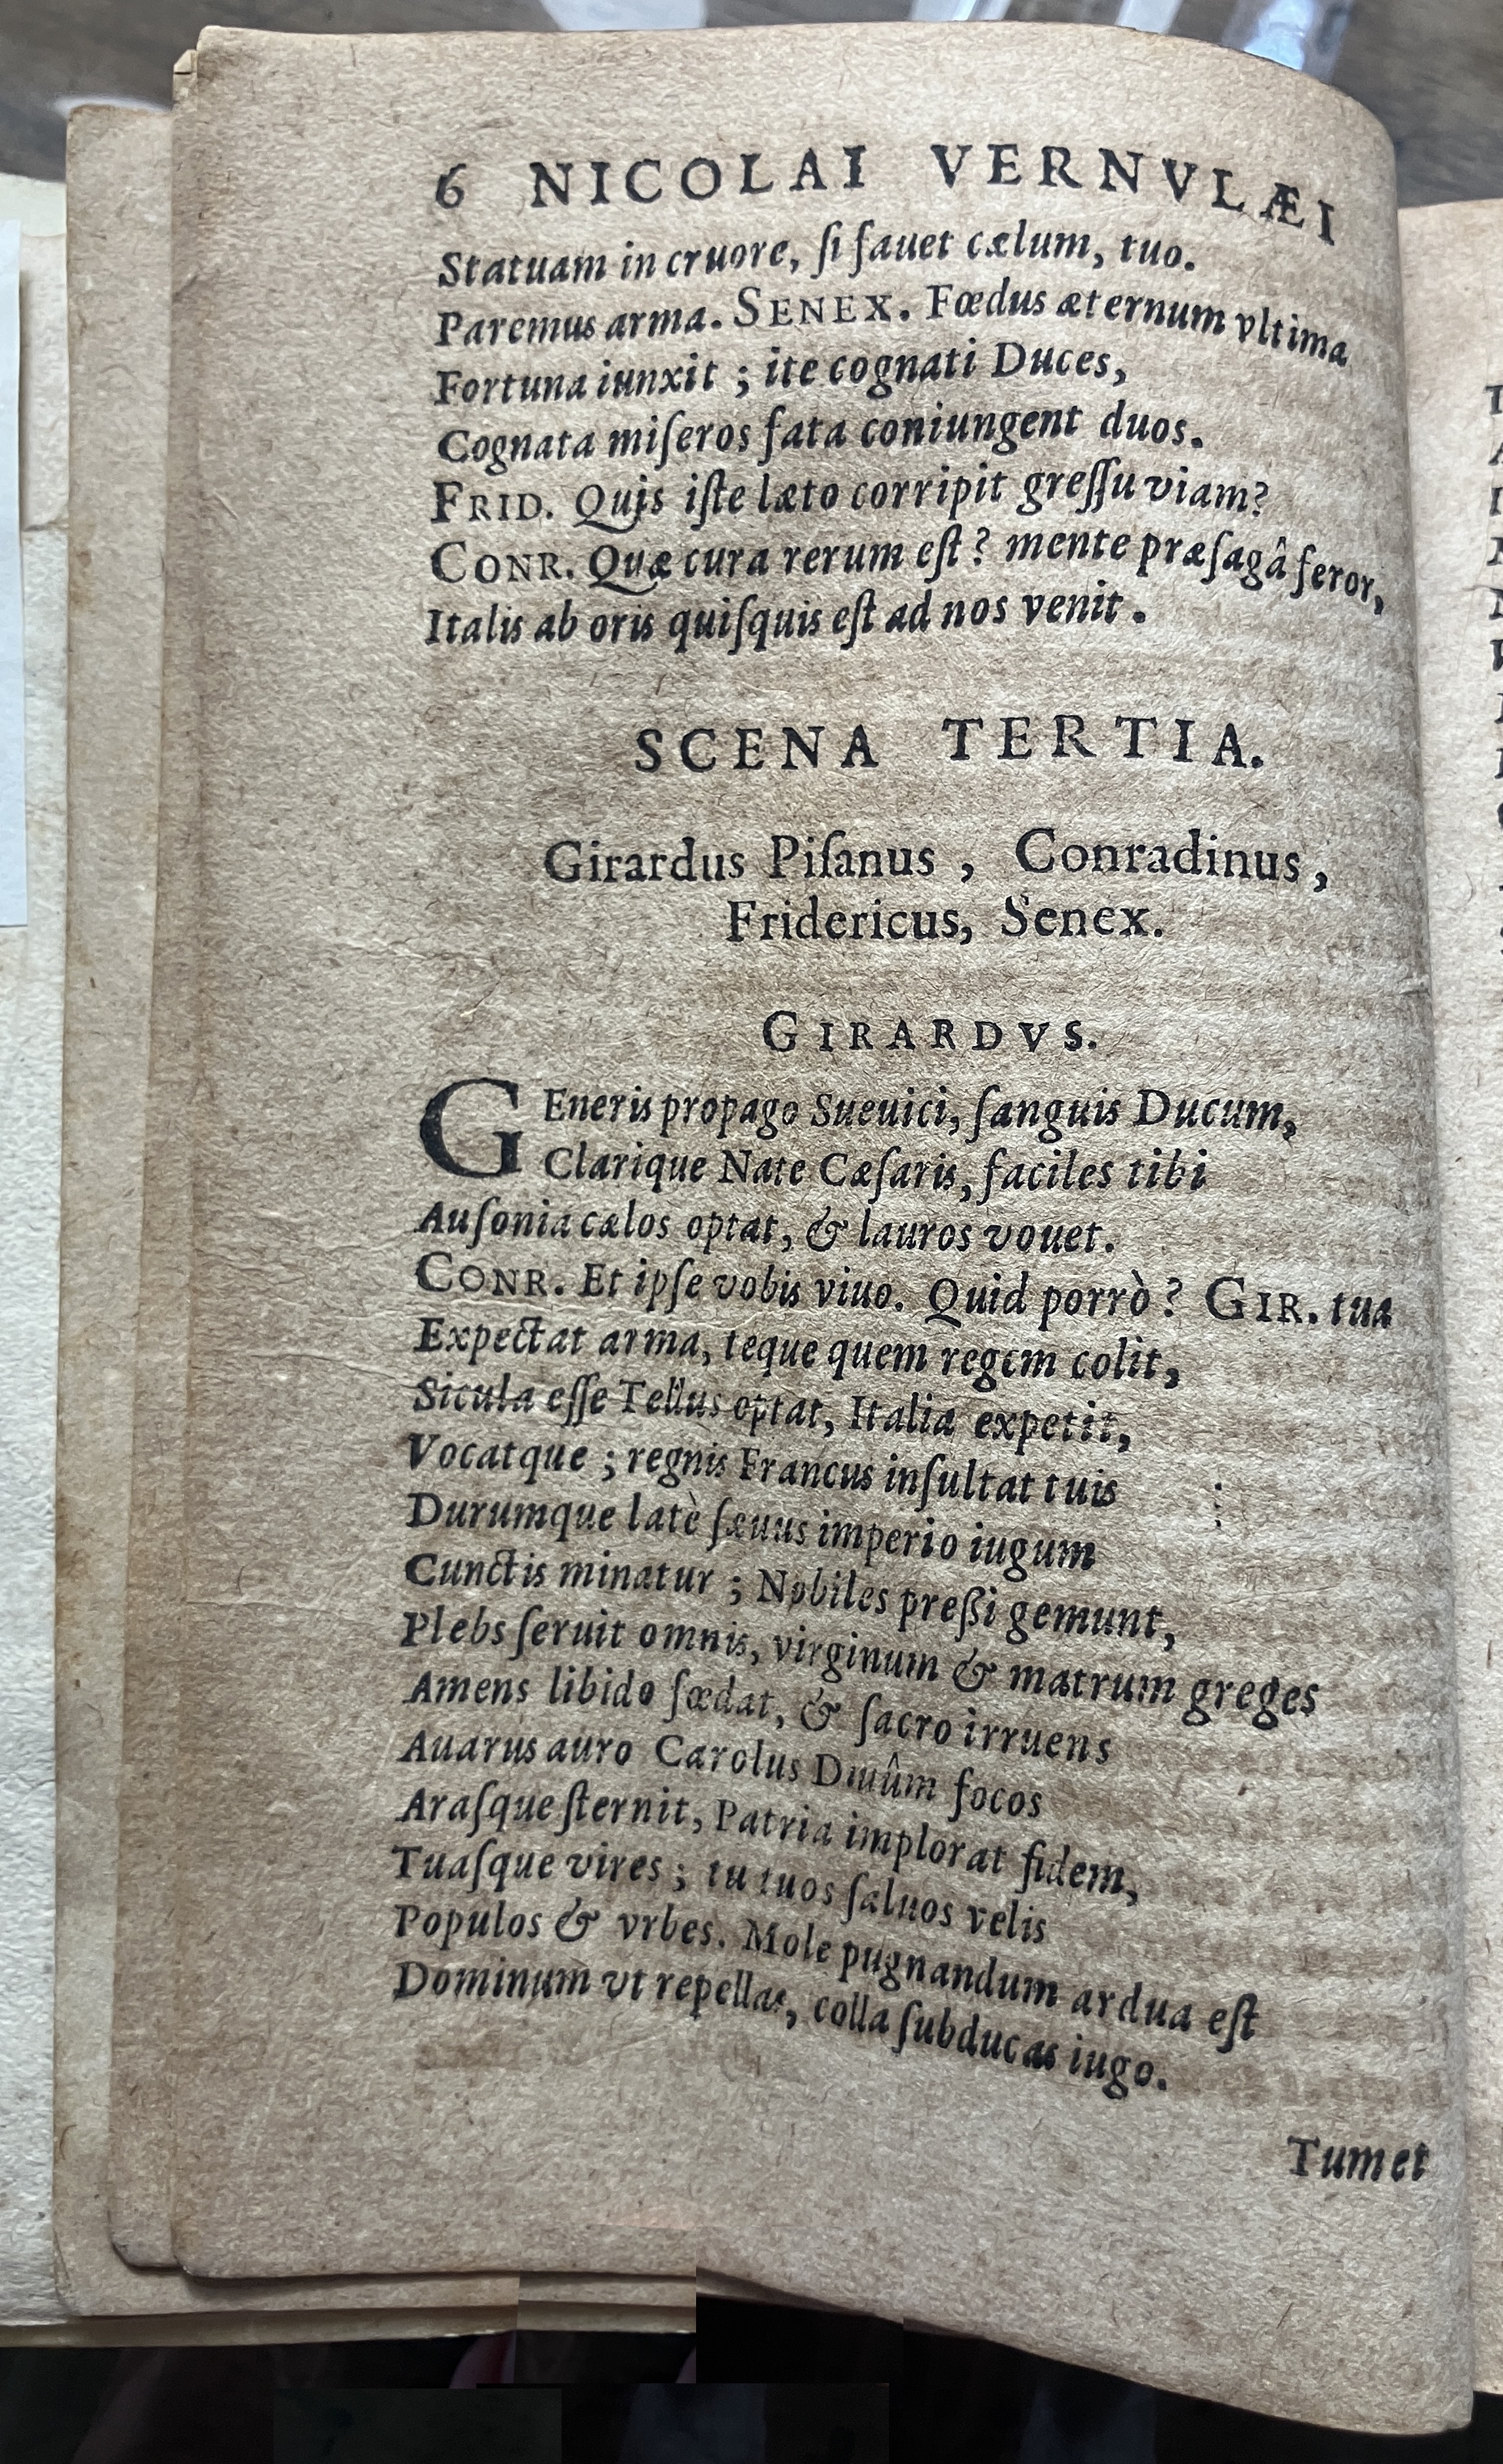 6 NICOLAI VERNVLÆI
Statuam in cruore, ſi fauet cælum, tuo.
Paremus arma. SENEX. Fœdus æternum vltima
Fortuna iunxit ; ite cognati Duces,
Cognata miſeros fata coniungent duos.
FRID. Quis iſte læto corripit greſſu viam?
CONR. Quæ cura rerum eſt? mente præſagâ feror,
Italis ab oris quiſquis eſt ad nos venit.
SCENA TERTIA.
Girardus Piſanus, Conradinus,
Fridericus, Senex.
GIRARDVS.
GEneris propago Sueuici, ſanguis Ducum,
Clarique Nate Cæſaris, faciles tibi
Auſonia cælos optat, & lauros vouet.
CONR. Et ipſe vobis viuo. Quid porrò? GIR. tua
Expectat arma, teque quem regem colit,
Sicula eſſe Tellus optat, Italia expetit,
Vocatque ; regnis Francus inſultat tuis
Durumque latè ſæuus imperio iugum
Cunctis minatur ; Nobiles preßi gemunt,
Plebs ſeruit omnis, virginum & matrum greges
Amens libido fœdat, & ſacro irruens
Auarus auro Carolus Diuûm focos
Araſque ſternit, Patria implorat fidem,
Tuaſque vires ; tu tuos ſaluos velis
Populos & vrbes. Mole pugnandum ardua eſt
Dominum vt repellas, colla ſubducas iugo.
Tumet